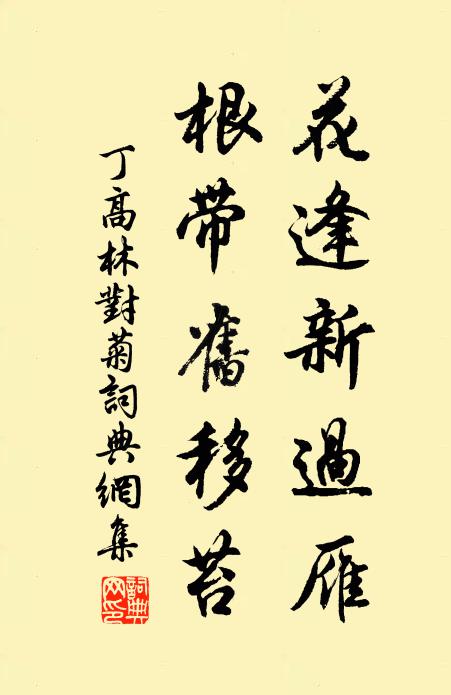 花逢新過雁
根帶舊移苔
丁高林對菊詞典網集
詞典網印